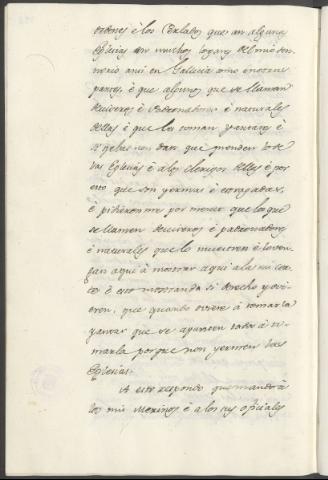 ordenes é los Perlados que an algunas
Eglesias en muchos logares del mio Sen-
norio anii en Galicia como en otras
partes, é que algunos que se llaman
Herederos é Padronadores é naturales
dellas é que les toman yantares é
si gelas non dan que prenden los de
las Eglesias é a los clerigos dellas é por
esto que son yermas é estragadas,
é pidieronme por mercet que los que
se llamen Herederos é padronadores
é naturales que lo muestren é lo ven-
gan aqui á mostrar aqui a la mi cor-
te é esto mostrando si derecho y ovie-
ren, que quando ovieren á tomar la
yantar que se ayunten todos á to-
marla porque non yermen las
Eglesias.
A esto respondo que mandaré á
los mis Merinos é a los sus oficiales